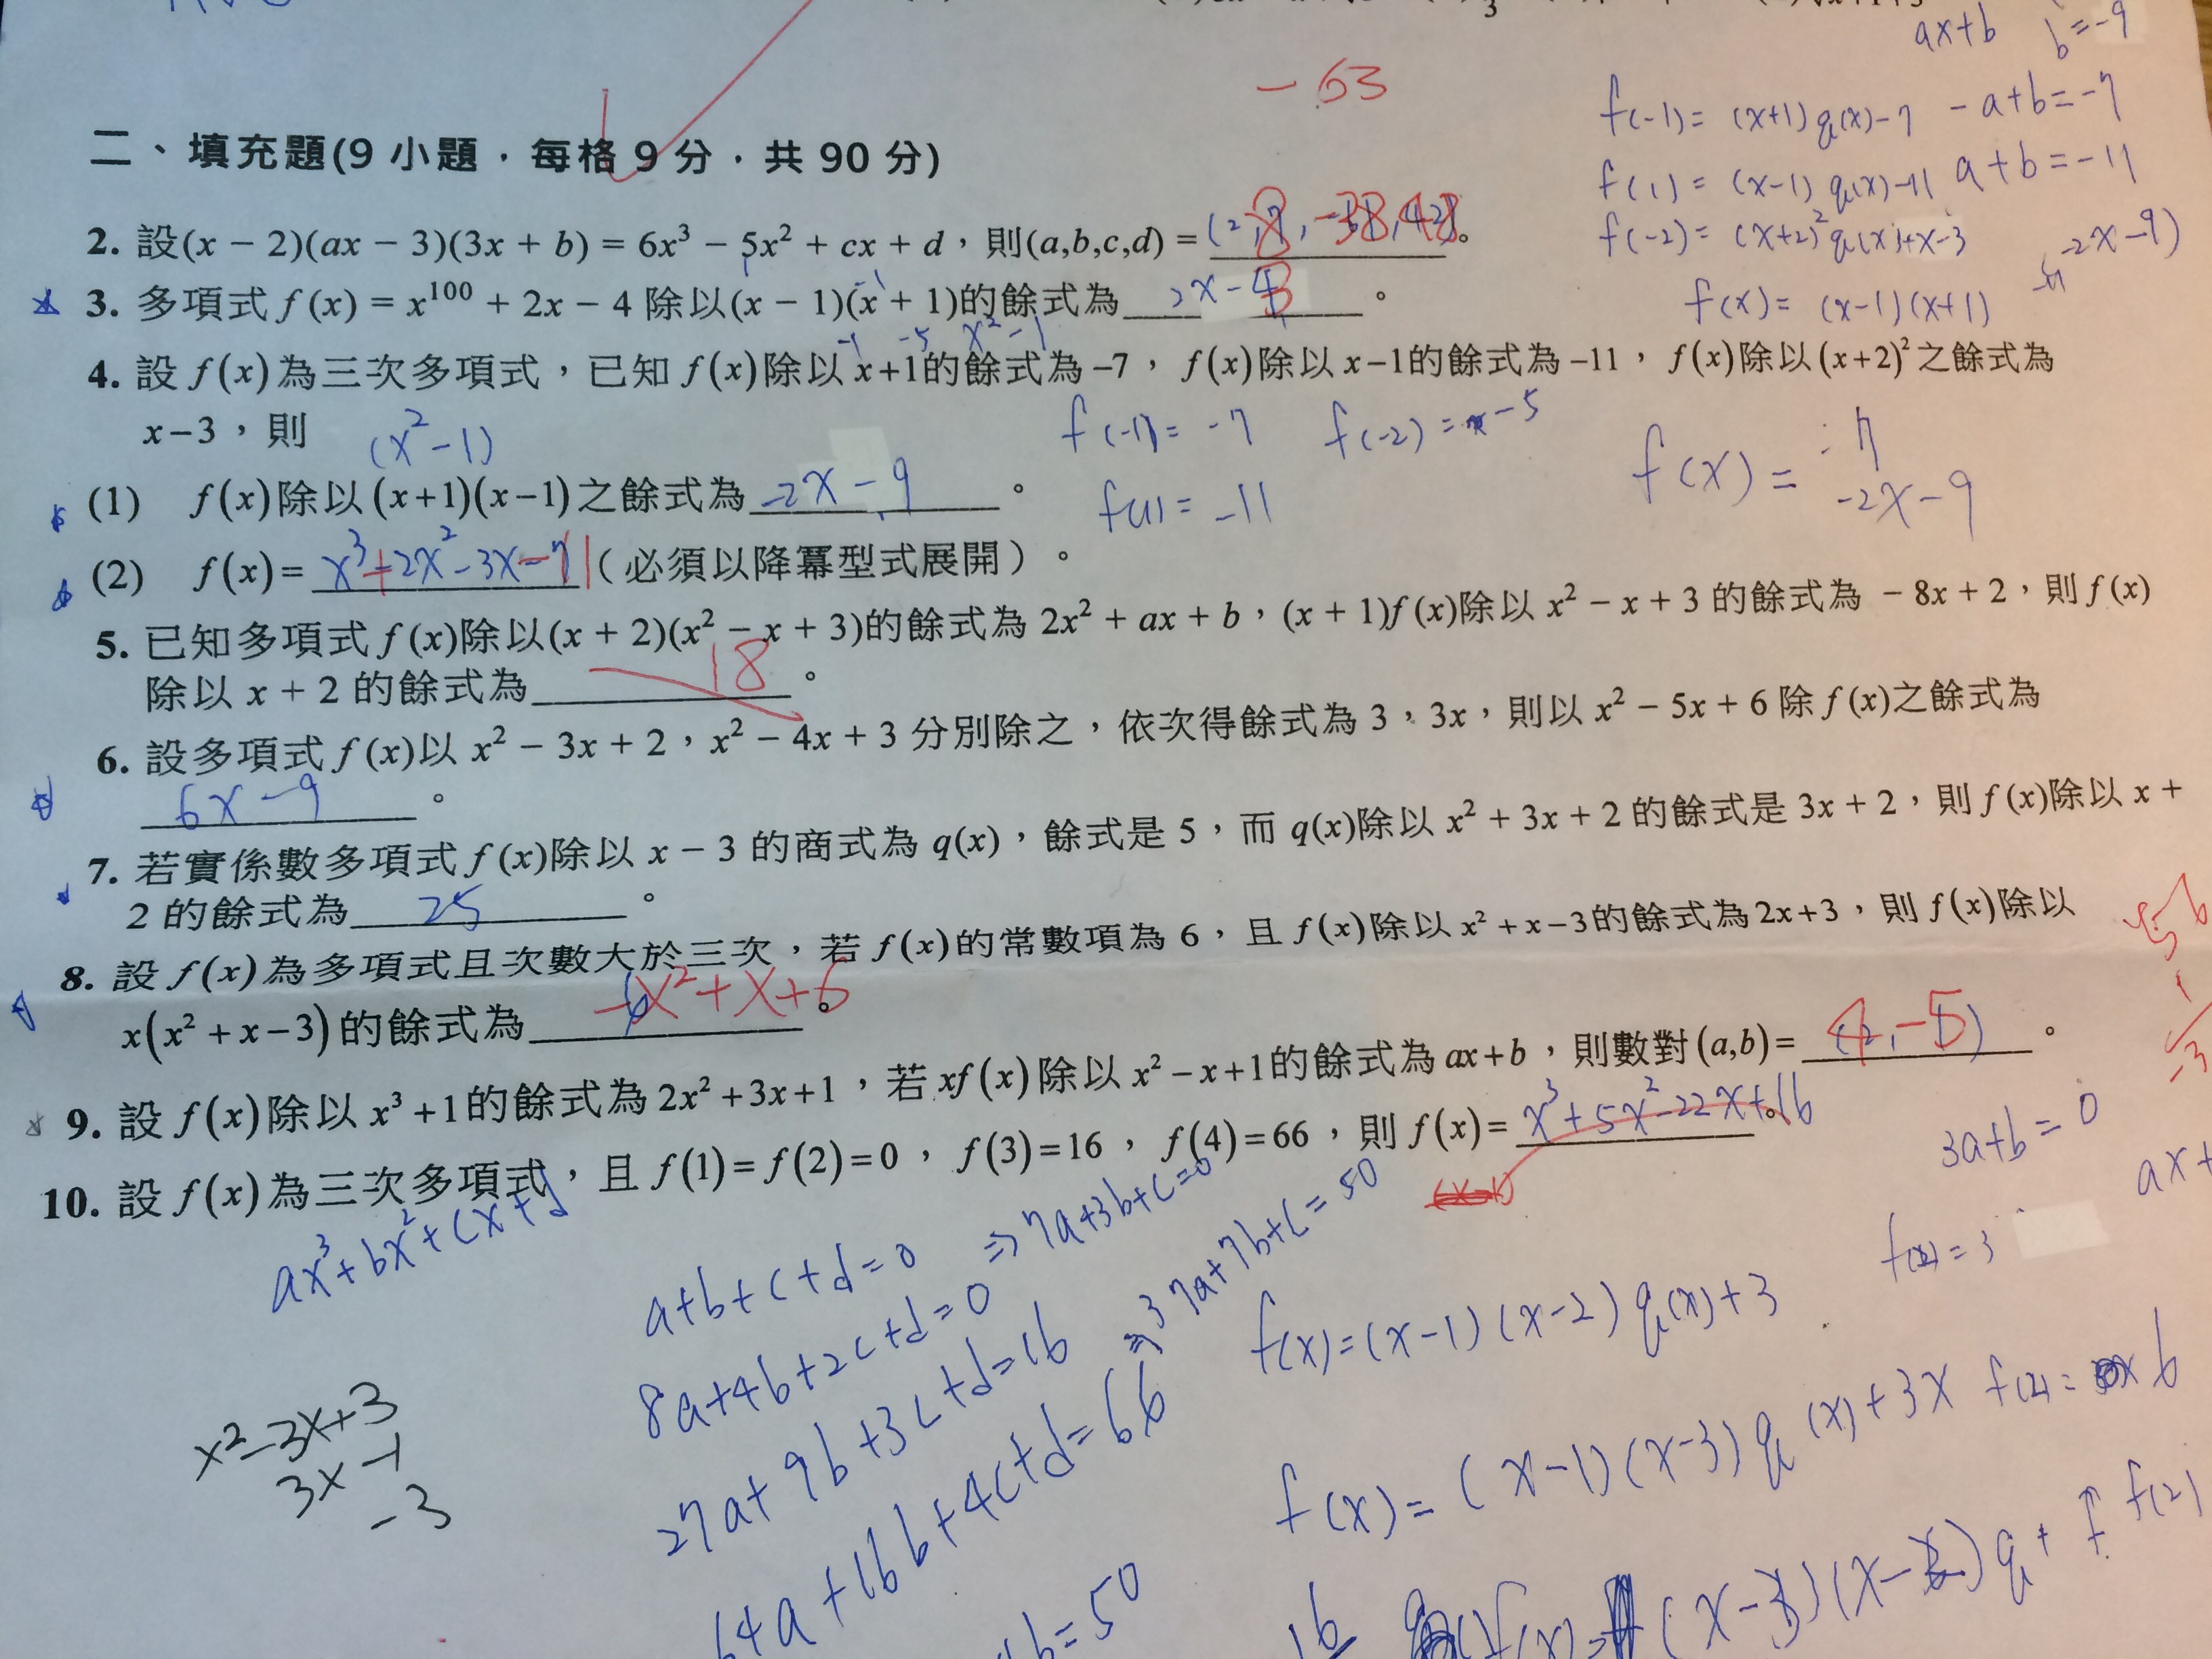 ax+b b=-9
-63
f(-1)=(x+1)q(x)-7 -a+b=-7
二、填充題(9 小題，每格 9 分，共 90 分)
f(1)=(x-1)q(x)-11 a+b=-11
2. 設(x − 2)(ax − 3)(3x + b) = 6x³ − 5x² + cx + d，則(a,b,c,d) = 。
f(-2)=(x+2)²q(x)+x-3
-2x-9)
3. 多項式 f(x) = x¹⁰⁰ + 2x − 4 除以(x − 1)(x + 1)的餘式為 2x-3 。
f(x)=(x-1)(x+1)
-1 -5 x²-1
4. 設 f(x)為三次多項式，已知 f(x)除以 x+1的餘式為 −7，f(x)除以 x−1的餘式為 −11，f(x)除以(x+2)²之餘式為
x−3，則
(x²-1)
f(-1)=-7 f(-2)=-5
(1) f(x)除以(x+1)(x−1)之餘式為 -2x-9 。
f(1)=-11
f(x)= -7
-2x-9
(2) f(x)= x³+2x²-3x-11 (必須以降冪型式展開)。
5. 已知多項式 f(x)除以(x + 2)(x² − x + 3)的餘式為 2x² + ax + b，(x + 1)f(x)除以 x² − x + 3 的餘式為 − 8x + 2，則 f(x)
除以 x + 2 的餘式為 18 。
6. 設多項式 f(x)以 x² − 3x + 2，x² − 4x + 3 分別除之，依次得餘式為 3，3x，則以 x² − 5x + 6 除 f(x)之餘式為
6x-9 。
7. 若實係數多項式 f(x)除以 x − 3 的商式為 q(x)，餘式是 5，而 q(x)除以 x² + 3x + 2 的餘式是 3x + 2，則 f(x)除以 x +
2 的餘式為 25 。
8. 設 f(x)為多項式且次數大於三次，若 f(x)的常數項為 6，且 f(x)除以 x²+x−3的餘式為 2x+3，則 f(x)除以
x(x²+x−3)的餘式為 -x²+x+6 。
9. 設 f(x)除以 x³+1的餘式為 2x²+3x+1，若 xf(x)除以 x²−x+1的餘式為 ax+b，則數對(a,b)= (4,-5) 。
10. 設 f(x)為三次多項式，且 f(1)=f(2)=0，f(3)=16，f(4)=66，則 f(x)= x³+5x²-22x+16 。
3a+b=0
ax+
ax³+bx²+cx+d
a+b+c+d=0 ⇒7a+3b+c=0
8a+4b+2c+d=0
27a+9b+3c+d=16 ⇒37a+7b+c=50
64a+16b+4c+d=66
b=50
f(x)=3
f(x)=(x-1)(x-2)q(x)+3
f(x)=(x-1)(x-3)q(x)+3x f(2)= 6
x²-3x+3
3x-1
-3
f(2)
16